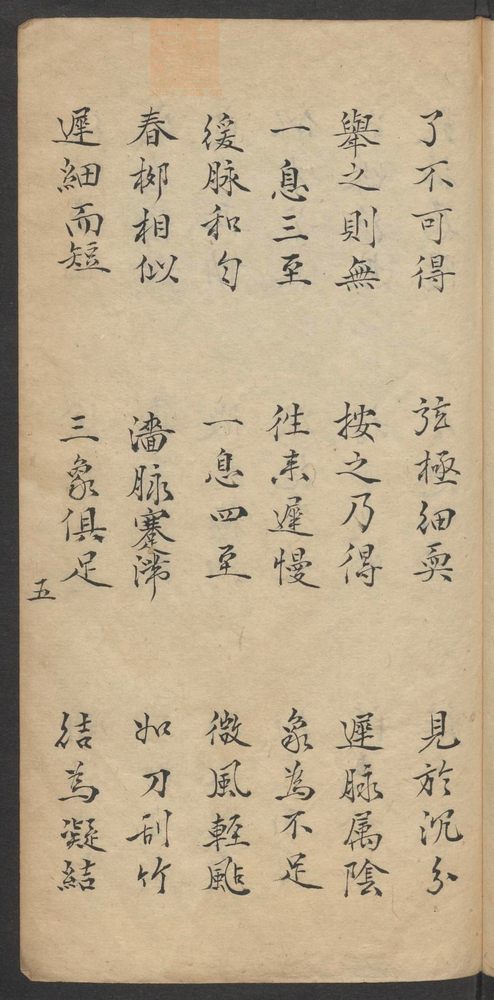 了不可得 弦極細耎 見於沉分
舉之則無 按之乃得 遲脉属陰
一息三至 徃来遲慢 象為不足
緩脉和匀 一息四至 微風輕颭
春柳相似 濇脉蹇滯 如刀刮竹
遲細而短 三象俱足 結為凝結
五